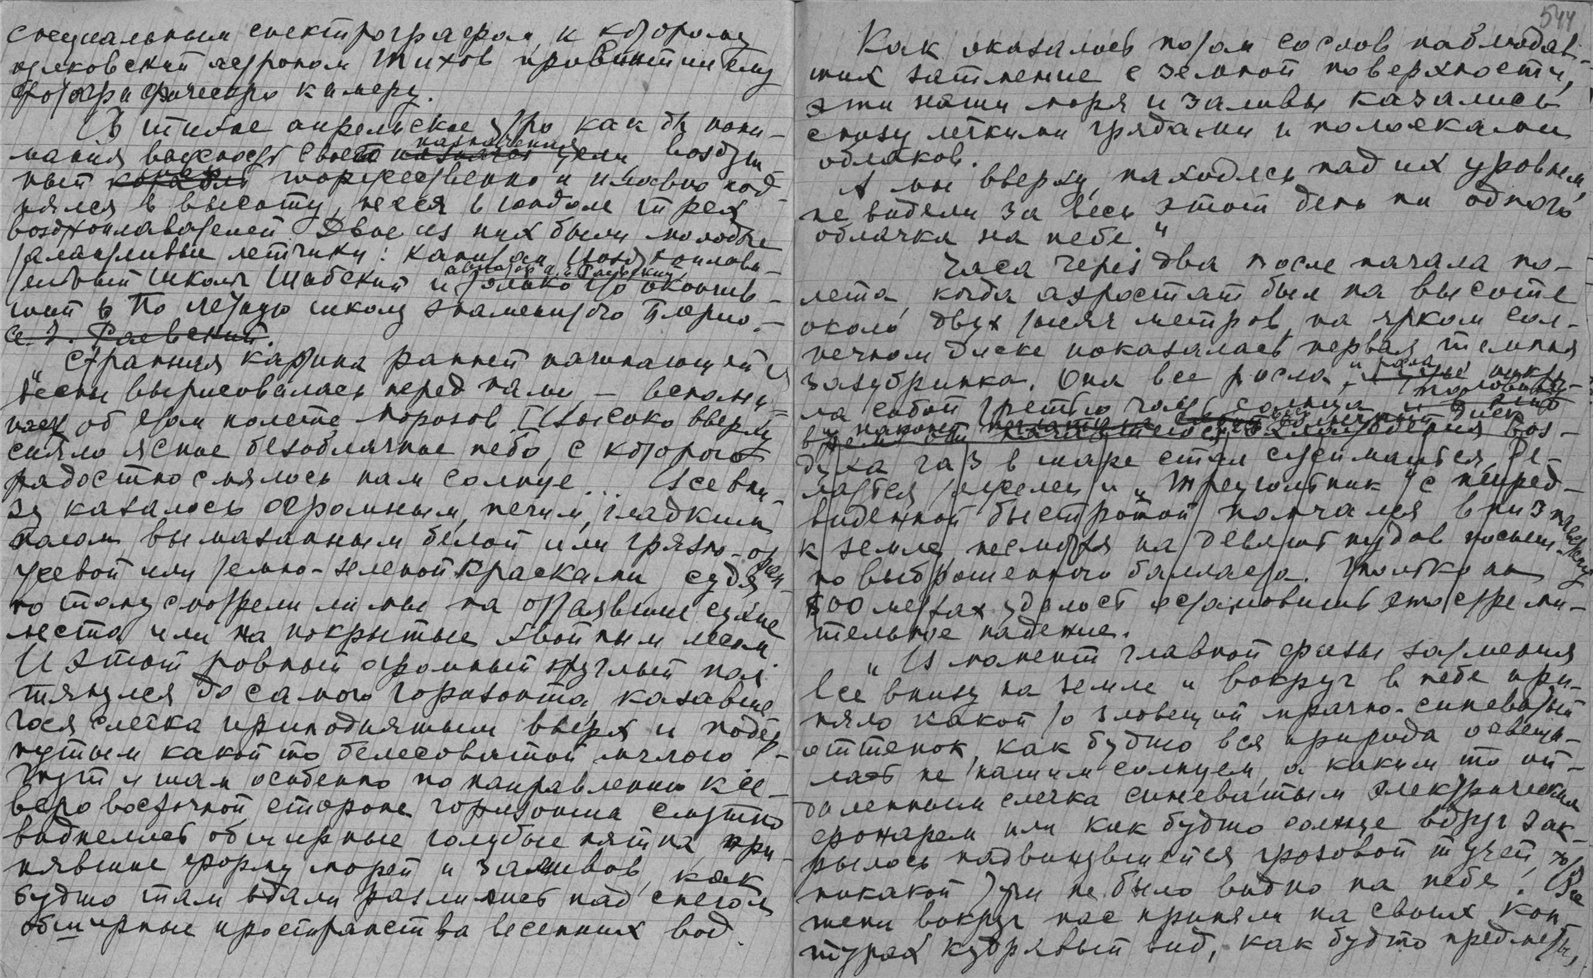 специальным спектрографом к которому
пулковский астроном Тихов привинтил ему
фотографическую камеру.
В тихое апрельское утро как бы пони-
мания важность своего назначения цели, воздуш
ный корабль торжественно и плавно под-
нялся в высоту, неся в гондоле трех
воздухоплавателей. Двое из них были молодые
талантливые летчики: капитан Воздухоплава-
тельной школы Шабский и только что окончив-
авиатор А. Е. Раевский
ший в По летную школу знаменитого Блерио.
А. Е. Раевский.
„Странная картина ранней начинающейся
весны вырисовывалась перед нами — вспоми-
нает об этом полете Морозов. Высоко вверху
сияло ясное безоблачное небо, с которого
радостно смеялось нам солнце... Все вни-
зу казалось огромным, печим, гладким
полом вымазанным белой или грязно-оран
жевой или темно-зеленой красками судя
по тому смотрели ли мы на оттаявшие сухие
места или на покрытые хвойным лесом.
И этот ровный огромный круглый пол
тянулся до самого горизонта, казавше
гося слегка приподнятым вверх и подер
нутым какой то белесоватой мглою.
Тут и там особенно по направлению к се-
веро восточной стороне горизонта смутно
виднелись обширные голубые пятна при-
нявшие форму морей и заливов, как
будто там вдали разлились над снегом
обширные пространства весенних вод.
544
Как оказалось потом со слов наблюдав-
ших затмение с земной поверхности,
эти наши моря и заливы казались
снизу легкими грядами и полосками
облаков.
А мы вверху, находясь над их уровнем,
не видели за весь этот день ни одного
облачка на небе."
Часа через два после начала по-
лета, когда аэростат был на высоте
около двух тысяч метров, на ярком сол-
нечном диске показалась первая темная
зазубринка. Она все росла,
ла собой третью часть солнца и
в
духа газ в шаре стал сжиматься, де-
латься тяжелей и „Треугольник" с непред-
виденной быстротой помчался вниз
к земле, несмотря на девяносто пудов поспеш-
но выброшенного балласта. Только на
500 метрах удалось остановить это стреми-
тельное падение.
„В момент главной фазы затмения
все внизу на земле и вокруг в небе при-
няло какой то зловещий мрачно-синеватый
оттенок, как будто вся природа освеща-
лась не нашим солнцем, а каким то от-
даленным слегка синеватым электрическим
фонарем или как будто солнце вдруг зак-
рылось надвинувшейся грозовой тучей, но
никакой тучи не было видно на небе! Все
тени вокруг нас приняли на своих кон-
турах кудрявый вид, как будто предметы,